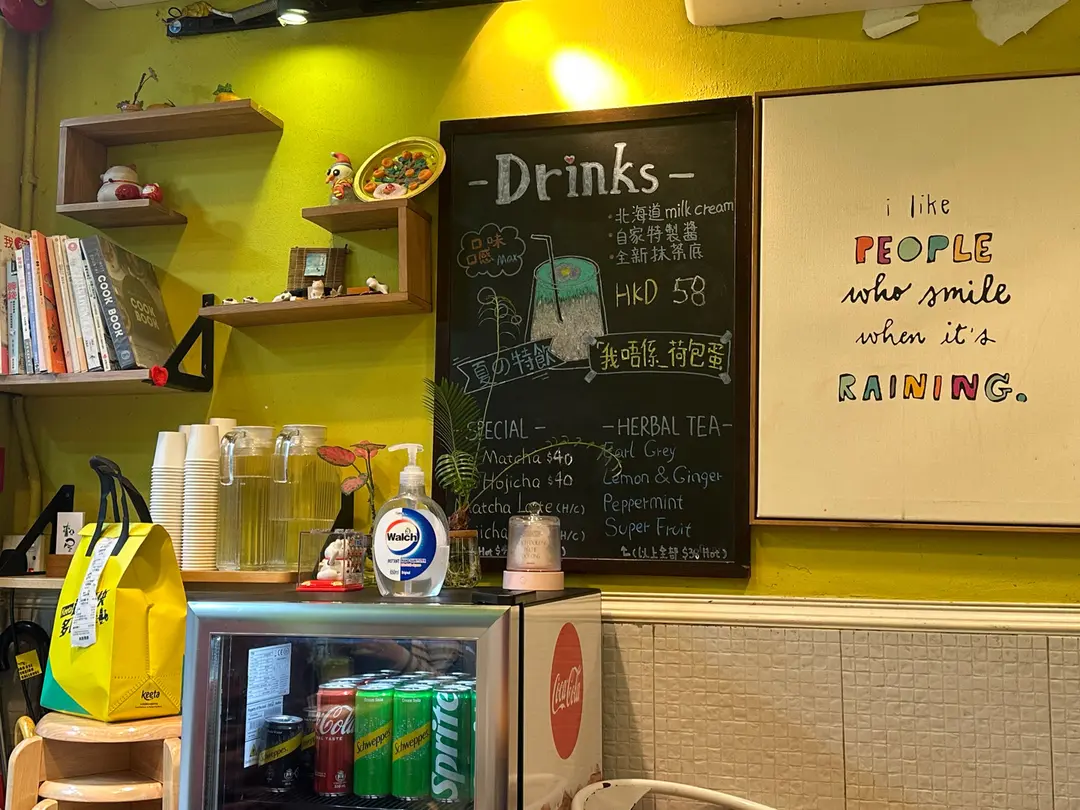 - Drinks -
口味
口感 Max
・北海道 milk cream
・自家特製醬
・全新抹茶底
HKD 58
夏の特飲
"我唔係_荷包蛋"
SPECIAL -
Matcha $40
Hojicha $40
Matcha Latte (H/C)
- HERBAL TEA -
Earl Grey
Lemon & Ginger
Peppermint
Super Fruit
(以上全部 $36 Hot)
i like
PEOPLE
who smile
when it's
RAINING.
COOK BOOK
COOK
BOOK
Walch
keeta
Coca-Cola
Schweppes
Coca-Cola
Schweppes
Schweppes
Sprite